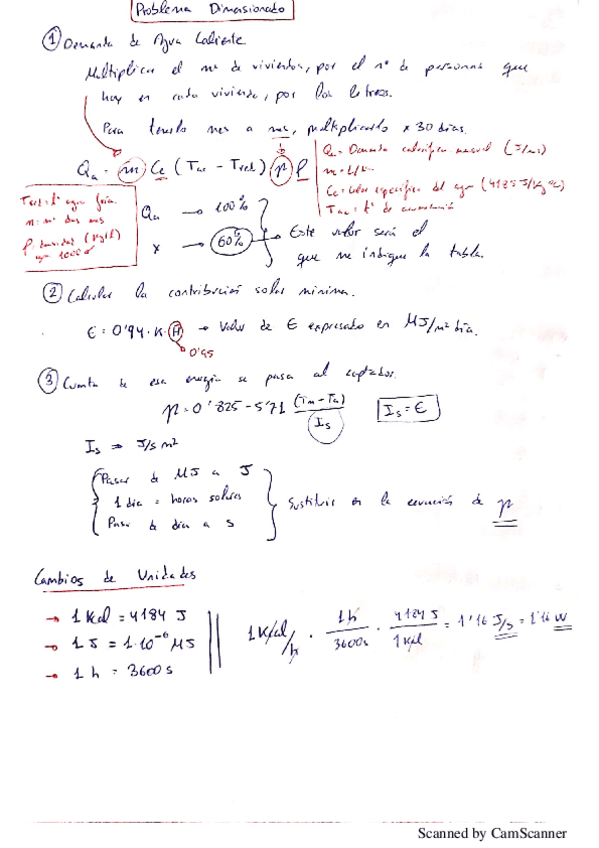 Problema Dimensionado
① Demanda de Agua Caliente
Multiplicar el nº de viviendas, por el nº de personas que
hay en cada vivienda, por los litros.
Para tenerlo mes a mes, multiplicarlo x 30 días.
Qa = m Ce (Tac - Tred) n ρ
Qa = Demanda calorífica mensual (J/mes)
Ce = Calor específico del agua (4185 J/kg ºC)
Tac = tª de acumulación
Tred = tª agua fría
n = nº días mes
ρ = densidad (kg/l)
Qa → 100%
x → 60% → Este valor será el
que me indique la tabla.
② Calcular la contribución solar mínima.
E = 0'94 · K · H → Valor de E expresado en MJ/m² día.
0'95
③ Cuanta de esa energía se pasa al captador.
η = 0'825 - 5'71 (Tm - Ta) / Is
Is = E
Is ⇒ J/s m²
Pasar de MJ a J
1 día = horas solares
Pasar de día a s
Sustituir en la ecuación de η
Cambios de Unidades
→ 1 Kcal = 4184 J
→ 1 J = 1·10⁻⁶ MJ
→ 1 h = 3600 s
1 Kcal/h · 1h/3600s · 4184 J/1 Kcal = 1'16 J/s = 1'16 W
Scanned by CamScanner